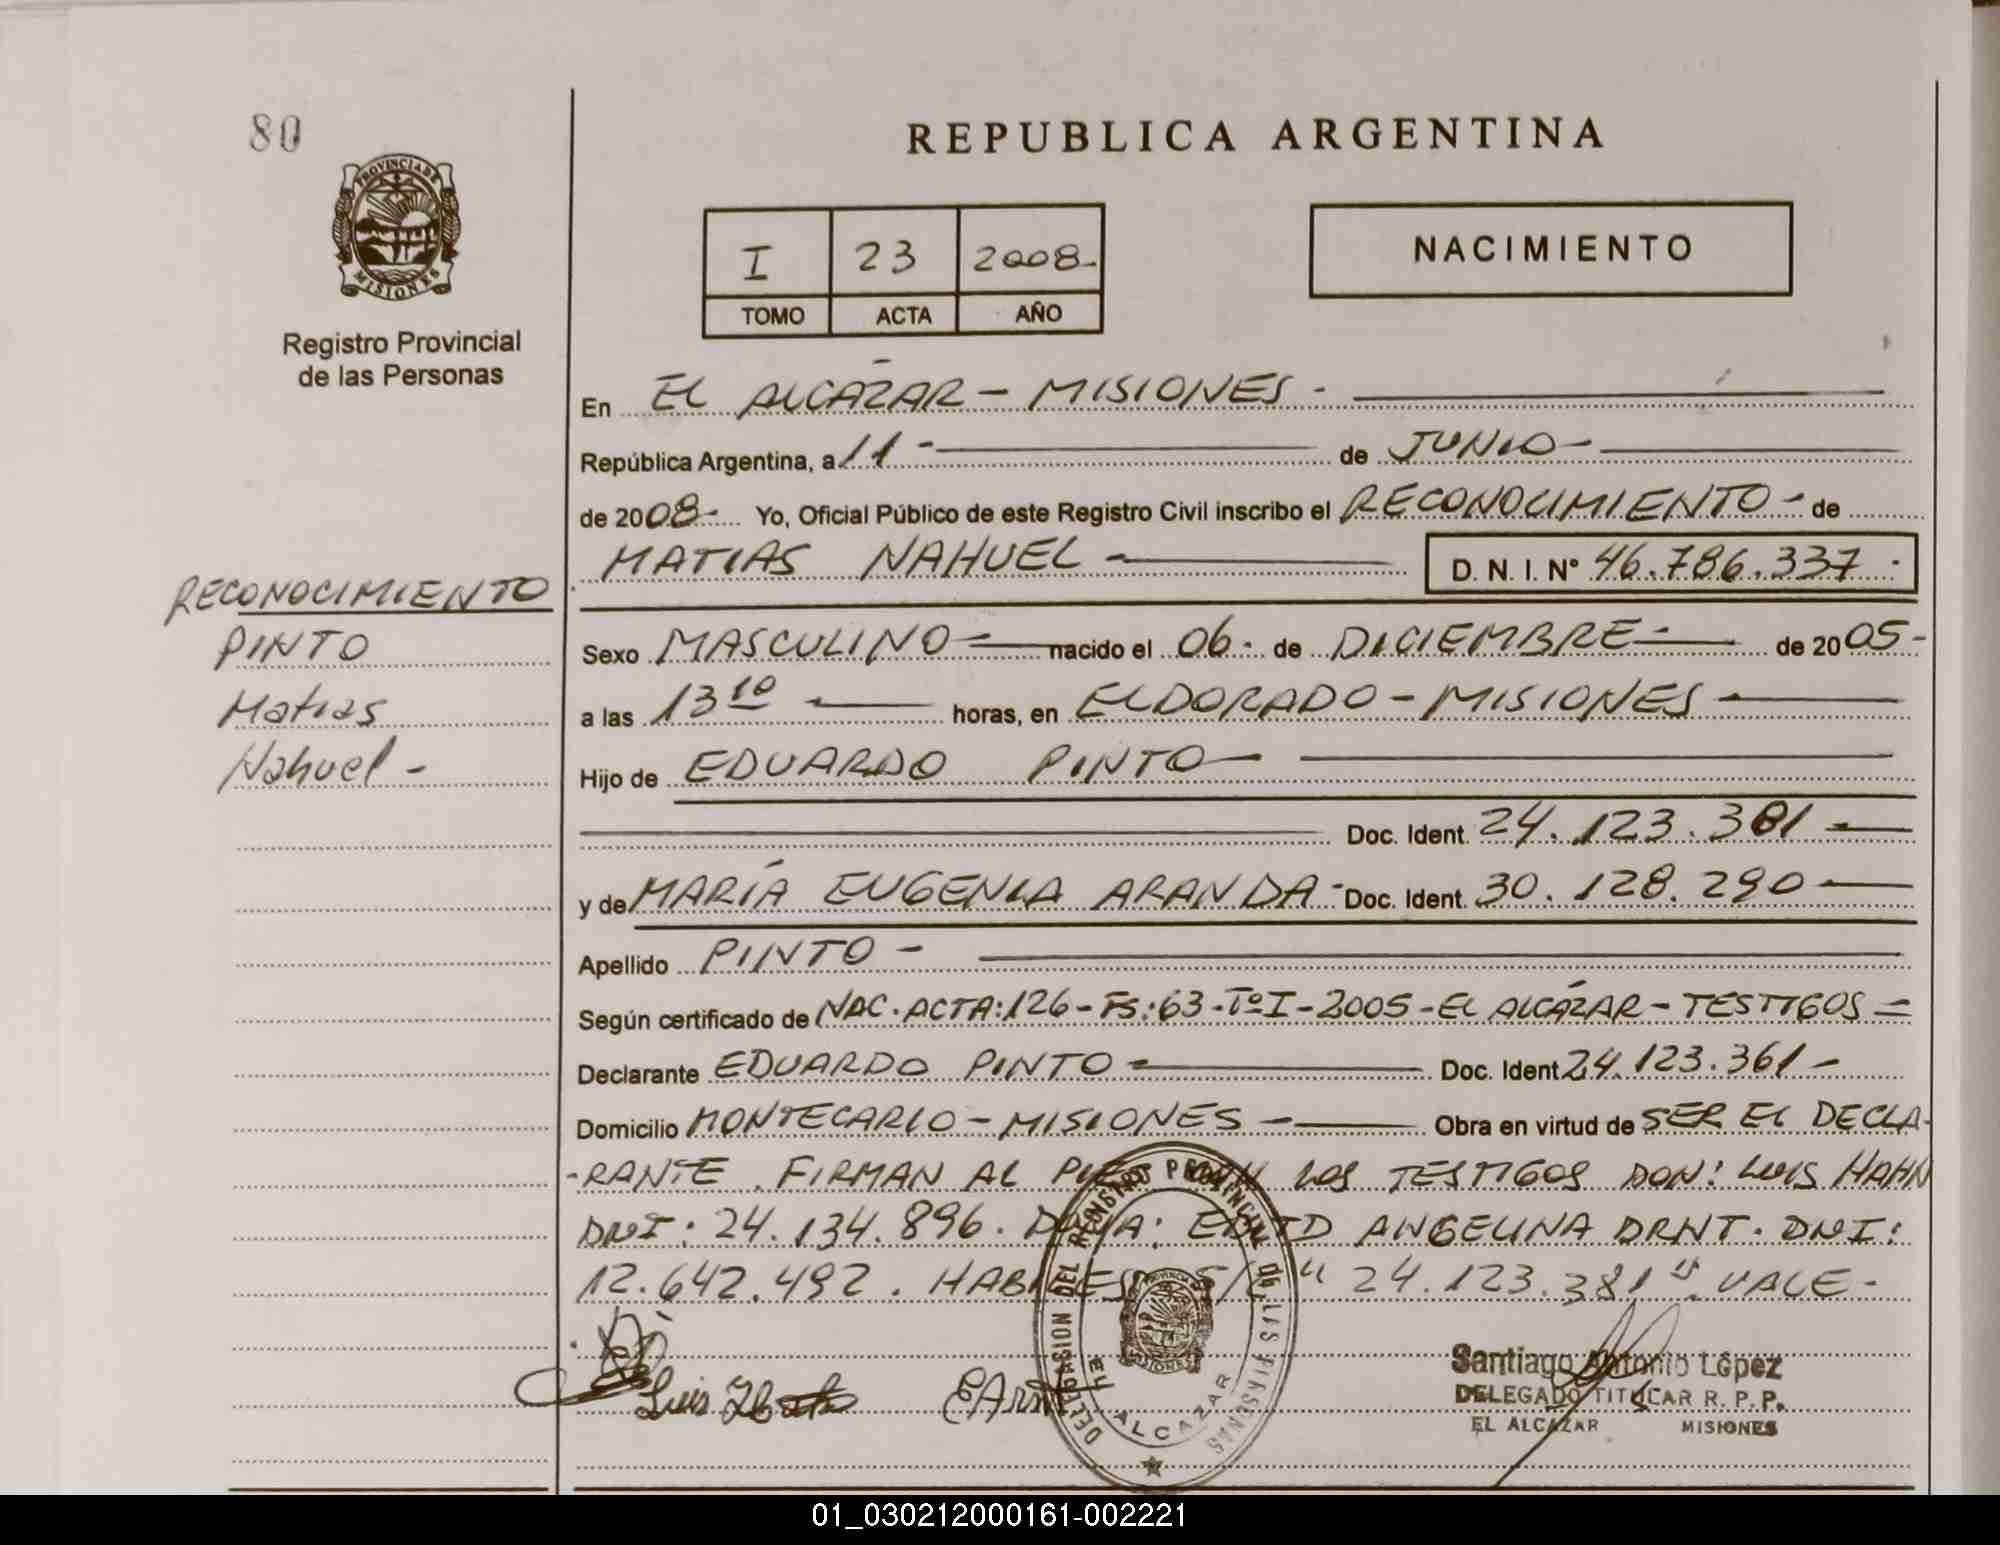 80
PROVINCIA DE
MISIONES
Registro Provincial
de las Personas
REPUBLICA ARGENTINA
I 23 2008-
TOMO ACTA AÑO
NACIMIENTO
En EL ALCÁZAR - MISIONES -
República Argentina, a 11 - de JUNIO -
de 2008- Yo, Oficial Público de este Registro Civil inscribo el RECONOCIMIENTO - de
MATIAS NAHUEL - D. N. I. Nº 46.786.337 -
RECONOCIMIENTO
PINTO
Matias
Nahuel -
Sexo MASCULINO - nacido el 06- de DICIEMBRE - de 2005-
a las 13 10 - horas, en ELDORADO - MISIONES -
Hijo de EDUARDO PINTO -
Doc. Ident. 24.123.381 -
y de MARÍA EUGENIA ARANDA - Doc. Ident. 30.128.290 -
Apellido PINTO -
Según certificado de NAC. ACTA: 126 - Fs: 63 - Tº I - 2005 - EL ALCÁZAR - TESTIGOS =
Declarante EDUARDO PINTO - Doc. Ident 24.123.361 -
Domicilio MONTECARLO - MISIONES - Obra en virtud de SER EL DECLA-
-RANTE. FIRMAN AL PIE LOS TESTIGOS DON: LUIS HAHN
DNI: 24.134.896. DOÑA: EDITD ANGELINA DRNT. DNI:
12.642.492. HABILES S/L " 24.123.381 ". VALE -
Luis
DELEGASION DEL REGISTRO PROVINCIAL DE LAS PERSONAS
PROVINCIA DE
MISIONES
EL ALCAZAR
Santiago Antonio López
DELEGADO TITULAR R. P. P.
EL ALCAZAR MISIONES
01_030212000161-002221